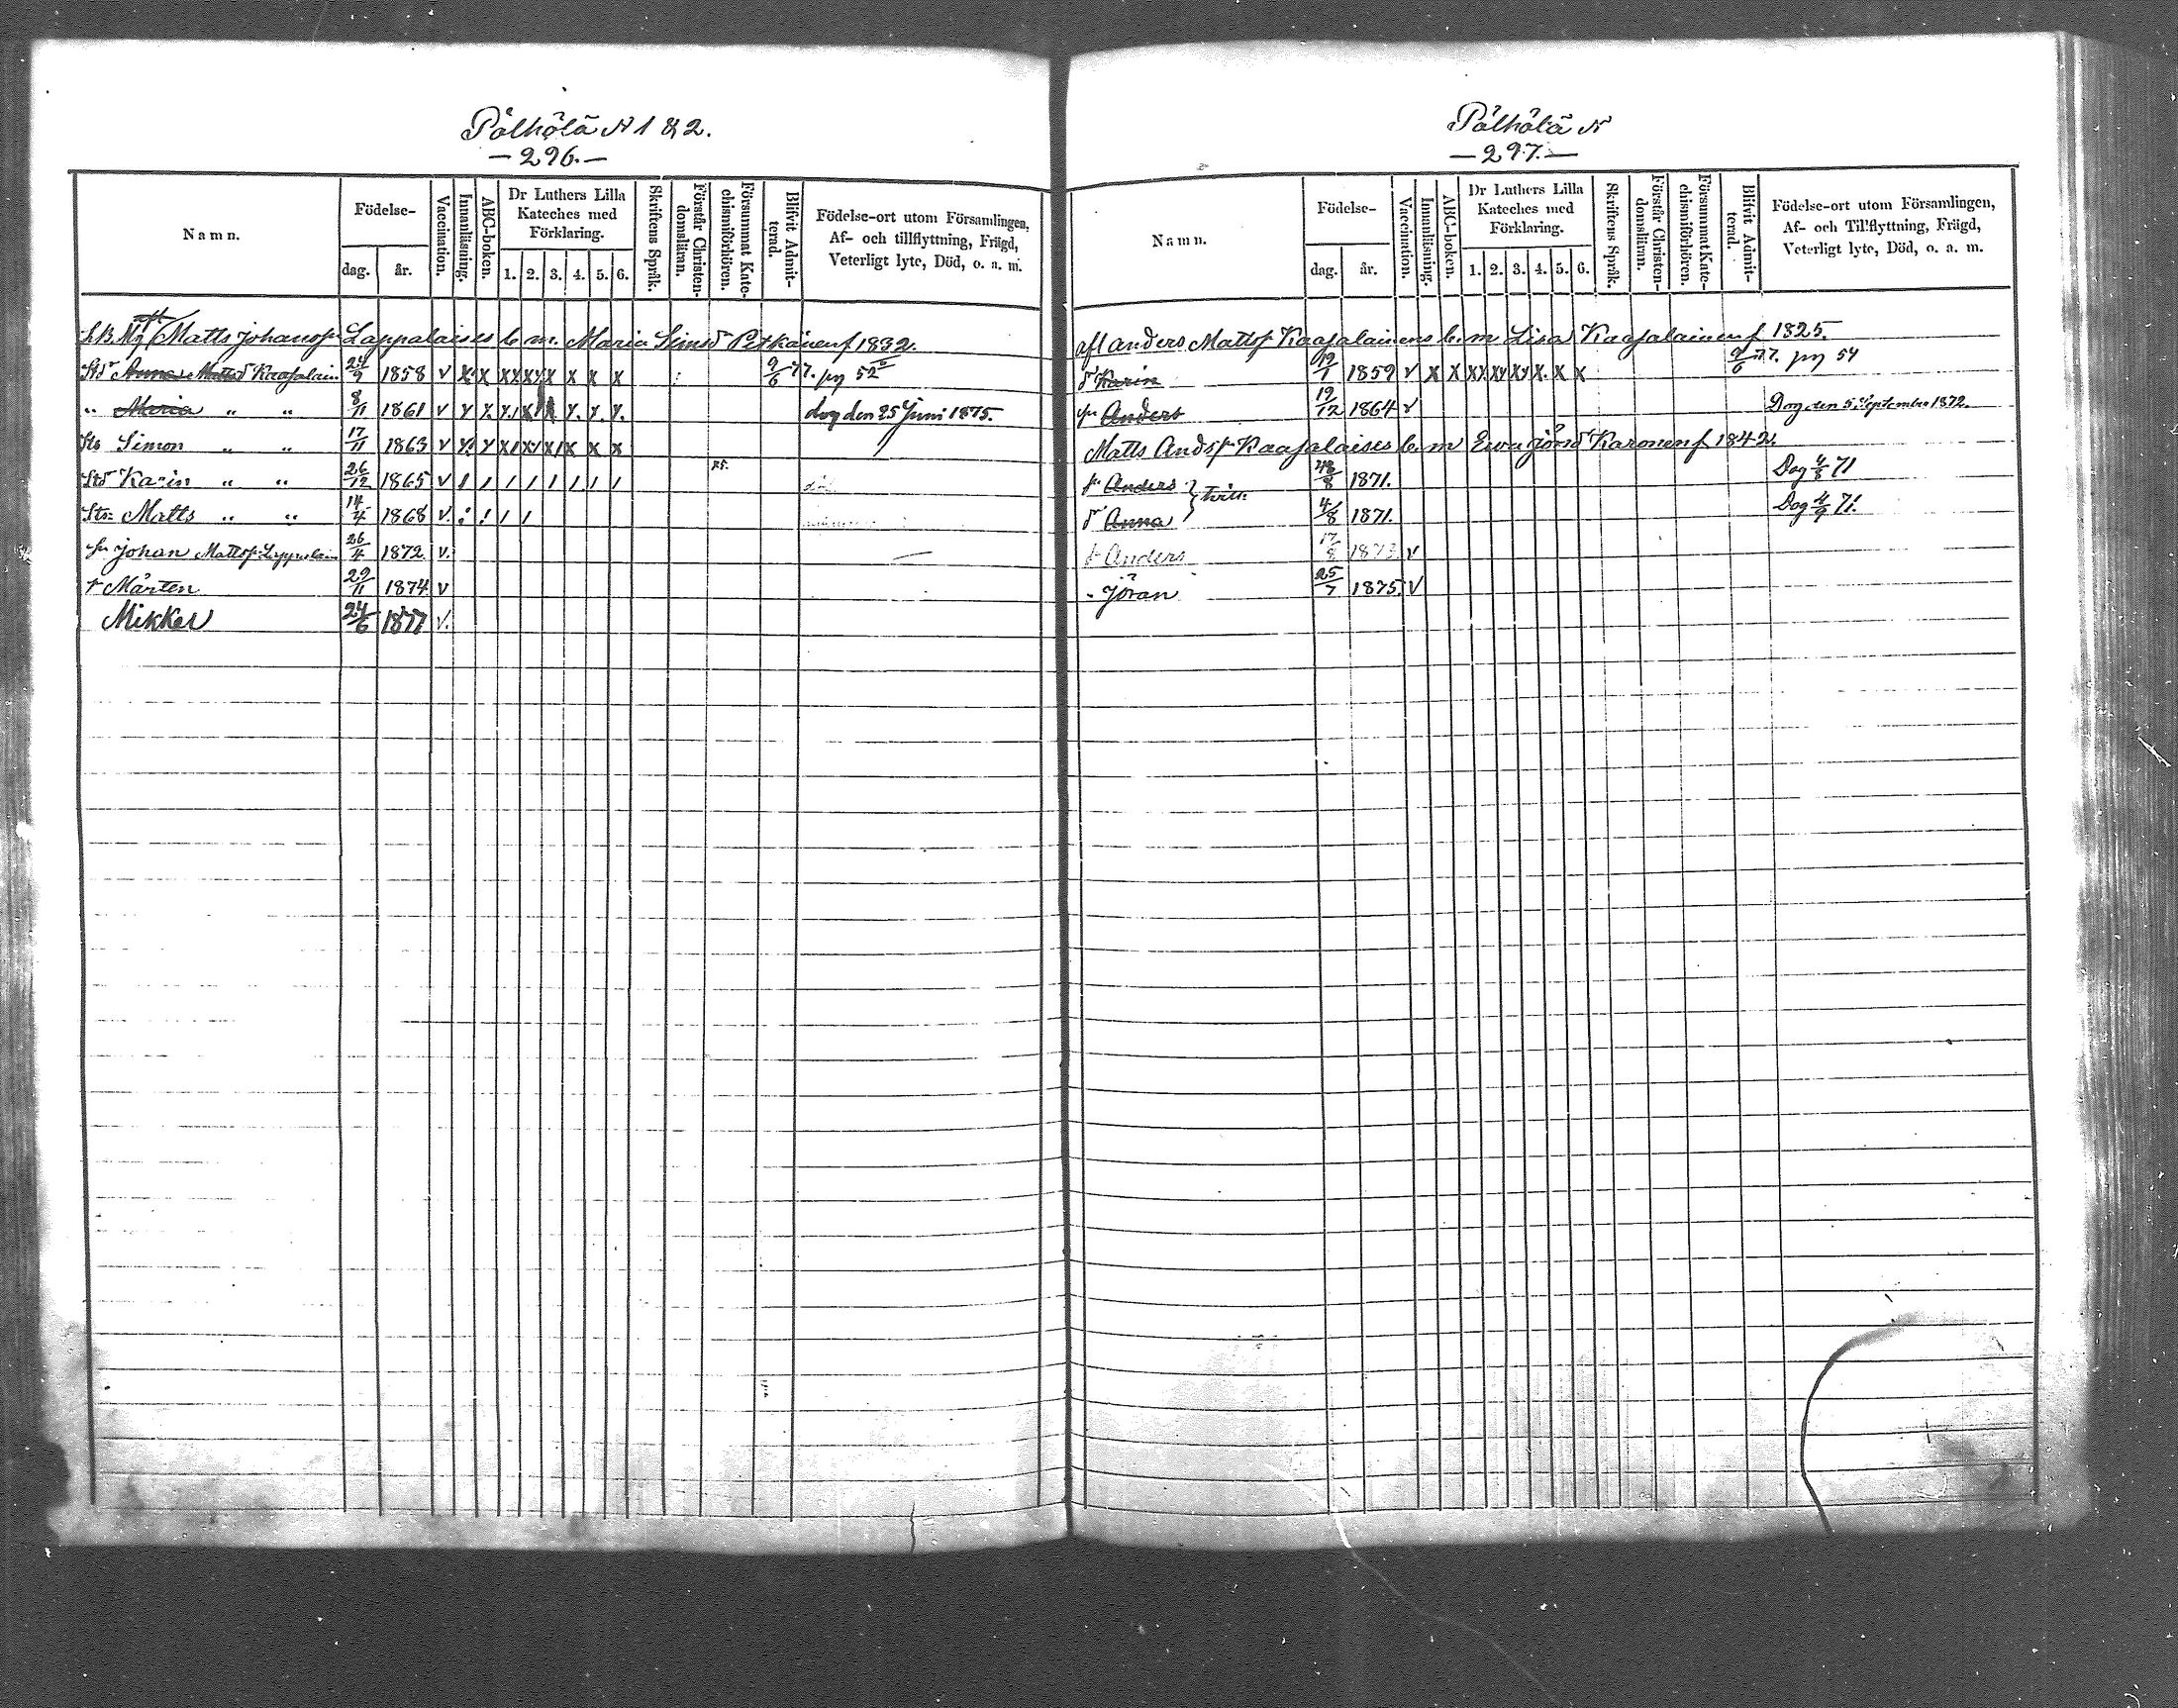 Pölhölä N 1 & 2.
— 296. —
Namn.
Födelse-
dag.
år.
Vaccination.
Innanläsning.
ABC-boken.
Dr Luthers Lilla
Kateches med
Förklaring.
1. 2. 3. 4. 5. 6.
Skriftens Språk.
Förstår Christen-
domsläran.
Försummat Kate-
chismiförhören.
Blifvit Admit-
terad.
Födelse-ort utom Församlingen,
Af- och tillflyttning, Frägd,
Veterligt lyte, Död, o. a. m.
Matts Johansson Lappalaises b. m. Maria Simsd Pitkänen f 1832.
Std Anna Mattsd Kaasalain 24/9 1858 v x x xx xx x x x x 9/6 77. pg 52
" Maria " " 8/11 1861 v dog den 25 Juni 1875.
Sts Simon " " 17/11 1863 v
Std Karin " " 26/12 1865 v / / / / / / / /
Sts Matts " " 14/4 1868 v. / /
Johan Mattss Lappalain 26/4 1872 v.
Mårten 29/11 1874 v
Mikkel 24/6 1877 v.
Pölhölä N
— 297. —
Namn.
Födelse-
dag.
år.
Vaccination.
Innanläsning.
ABC-boken.
Dr Luthers Lilla
Kateches med
Förklaring.
1. 2. 3. 4. 5. 6.
Skriftens Språk.
Förstår Christen-
domsläran.
Försummat Kate-
chismiförhören.
Blifvit Admit-
terad.
Födelse-ort utom Församlingen,
Af- och Tillflyttning, Frägd,
Veterligt lyte, Död, o. a. m.
afl Anders Mattss Kaasalainens b. m Lisa Kaasalainen f 1825.
d Karin 19/1 1859 v x x xx xy xx x. x x 9/6 77. pg 54
Anders 19/12 1864 v Dog den 5 September 1872.
Matts Ands Kaasalaises b. m Ewa Jörsd Karonen f. 1842.
Anders } tvill: 1871. Dog 4/8 71
d Anna 4/8 1871. Dog 4/9 71.
Anders 17/8 1873 v
Jöran 25/7 1875. v